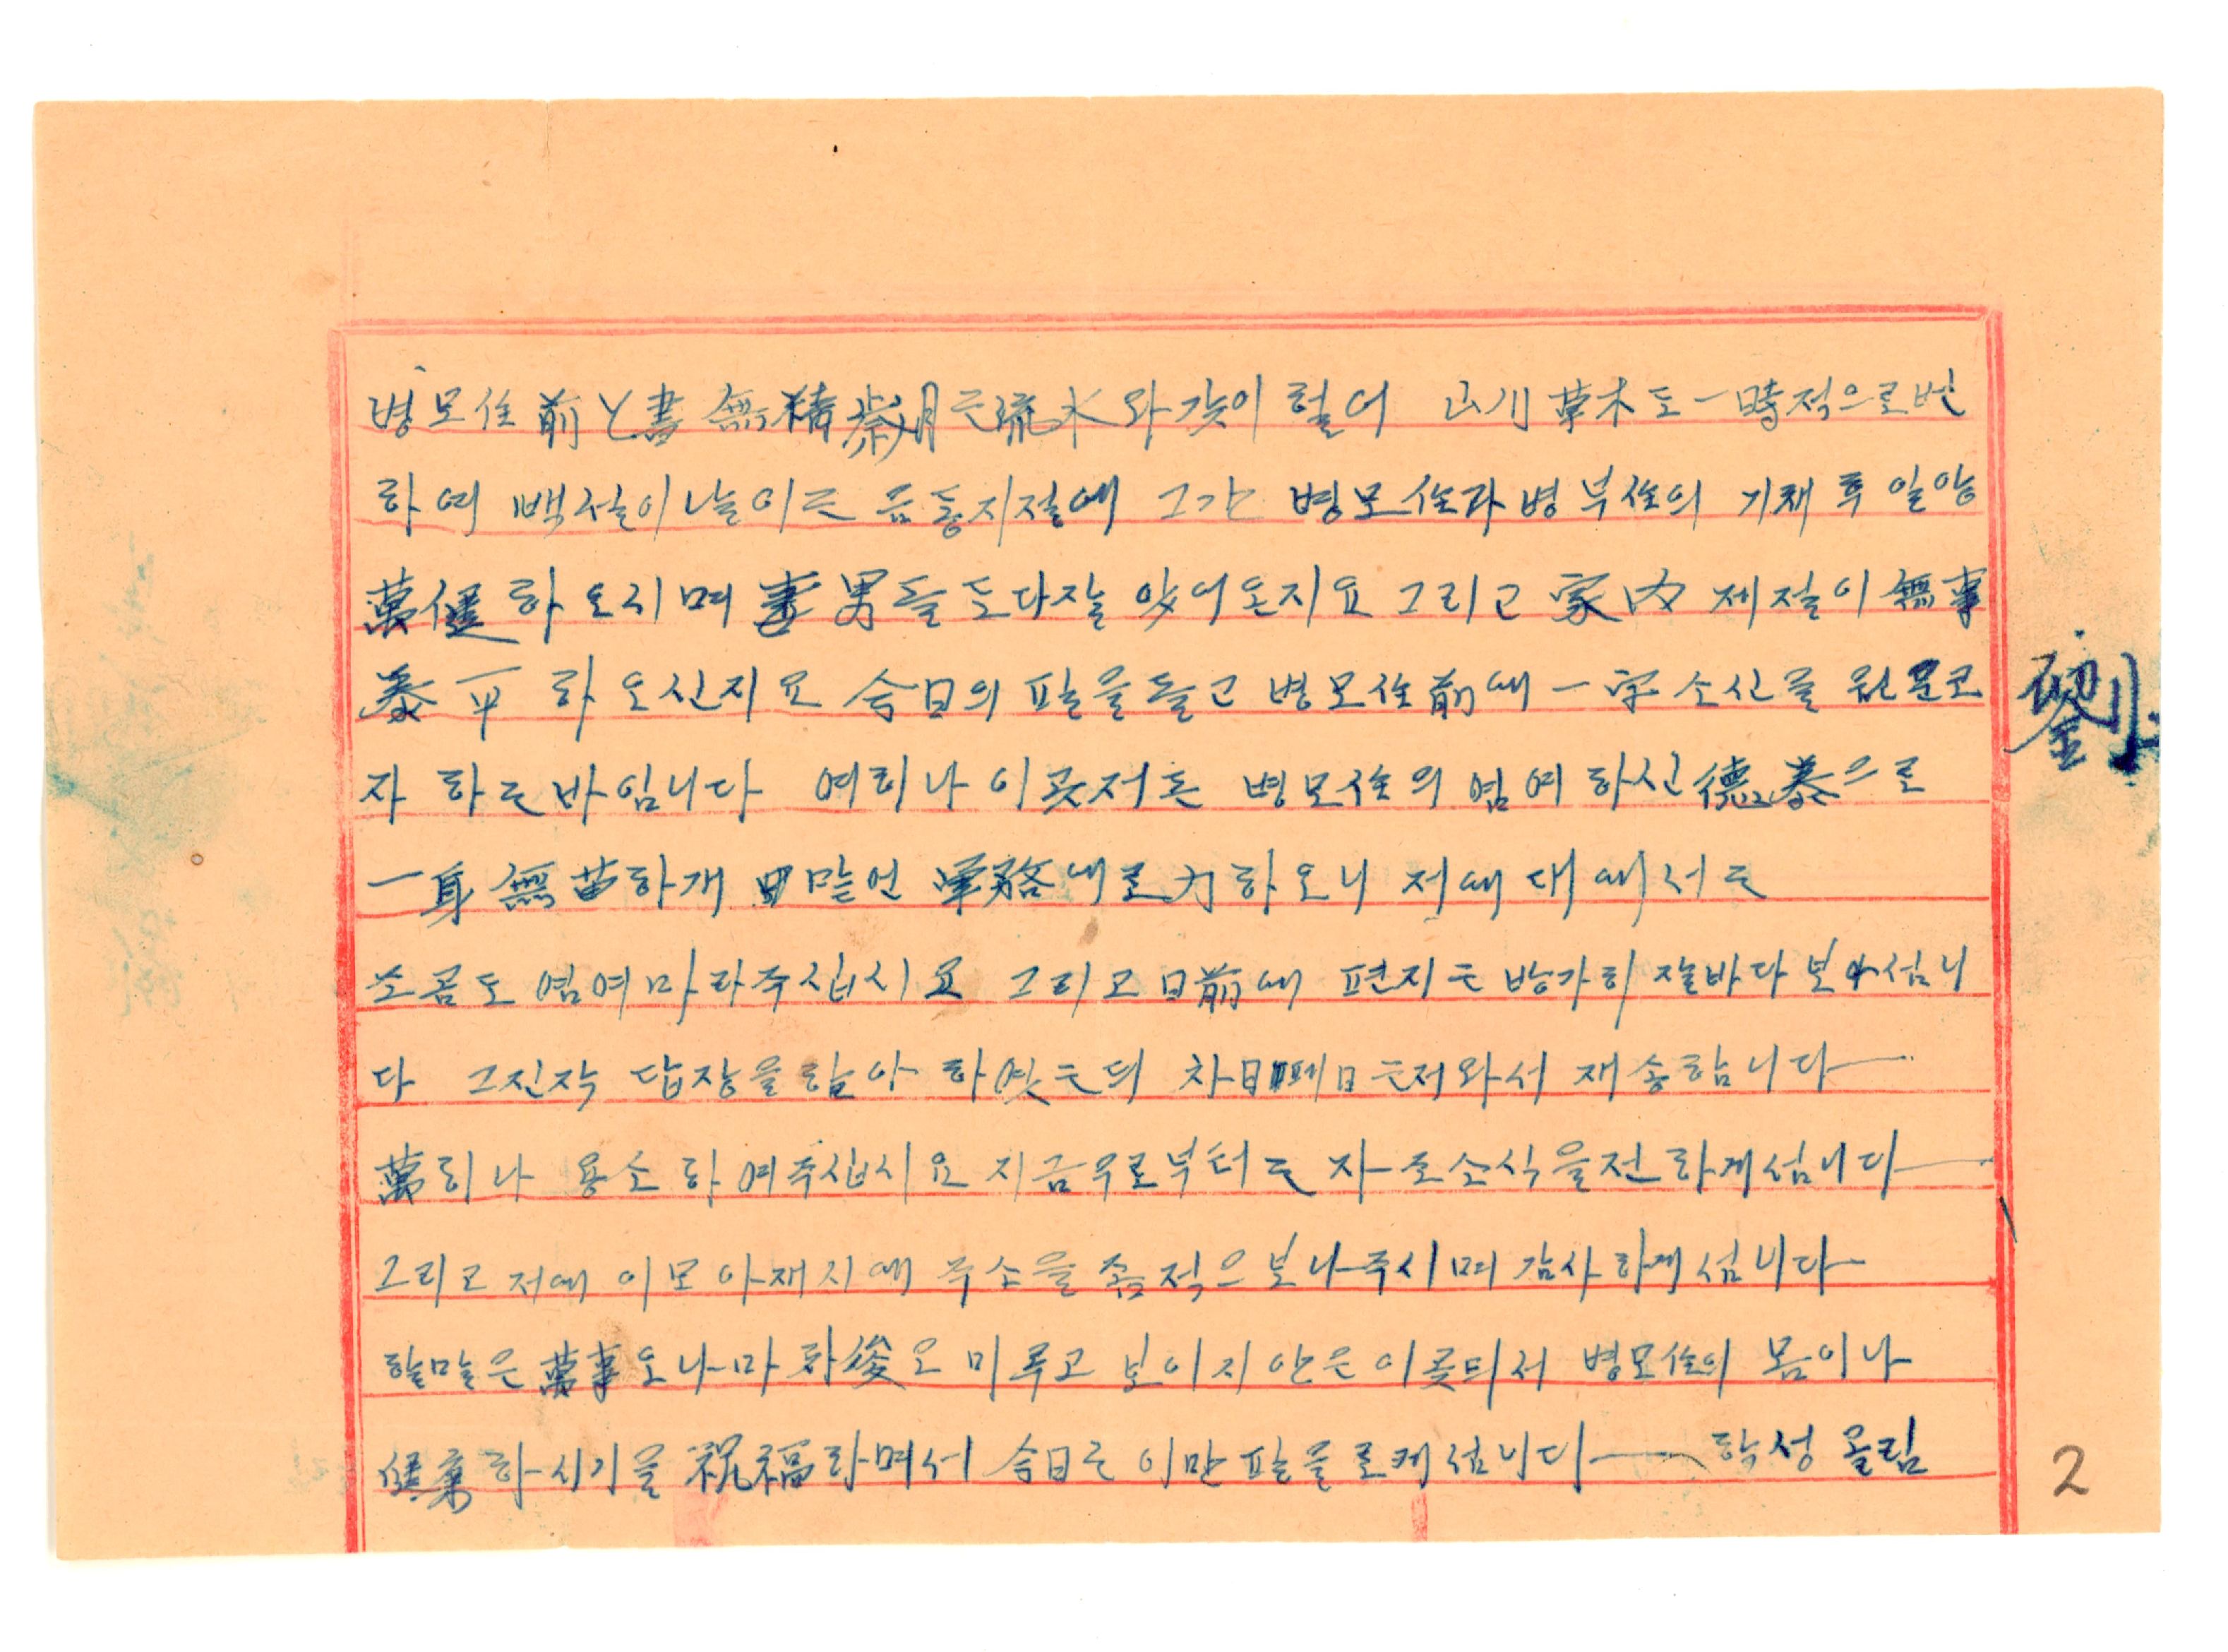 병모住前上書 無精歲月은流水와갗이 헐어 山川草木도一時的으로변
하여 빽설이날이는 음동지절에 그간 병모住과병부住의 기채후일양
萬健하오시며 妻男들도다잘 있어온지요 그리고 家內 제절이 無事
泰平하오신지요 今日의 필을들고 병모住前에 一字소신를 원문코
자 하는바임니다 여히나 이곳저는 병모住의 염여하신 德泰으로
一身無苗하개 맡언 軍務에로力하오니 저에대에서는
조곰도 염여마라주십시요 그리고日前에 편지는 방가히 잘바다보
다 그진작 답장을할아 하엿는듸 차日 日는저와서 재송합니다
萬히나 용소하여주십시요 지금우로부터는 자조소식을전하게섬니다
그리고 저에 이모아재지에 주소을 좀적으보나주시며 감사하게섬니다
할말은 萬事오나마 後오미루고 보이지안은이곳듸서 병모住의 몸이나
健康하시기을 祝福하며서 今日은 이만 필을로케섬니다 학성 올림
劉
2